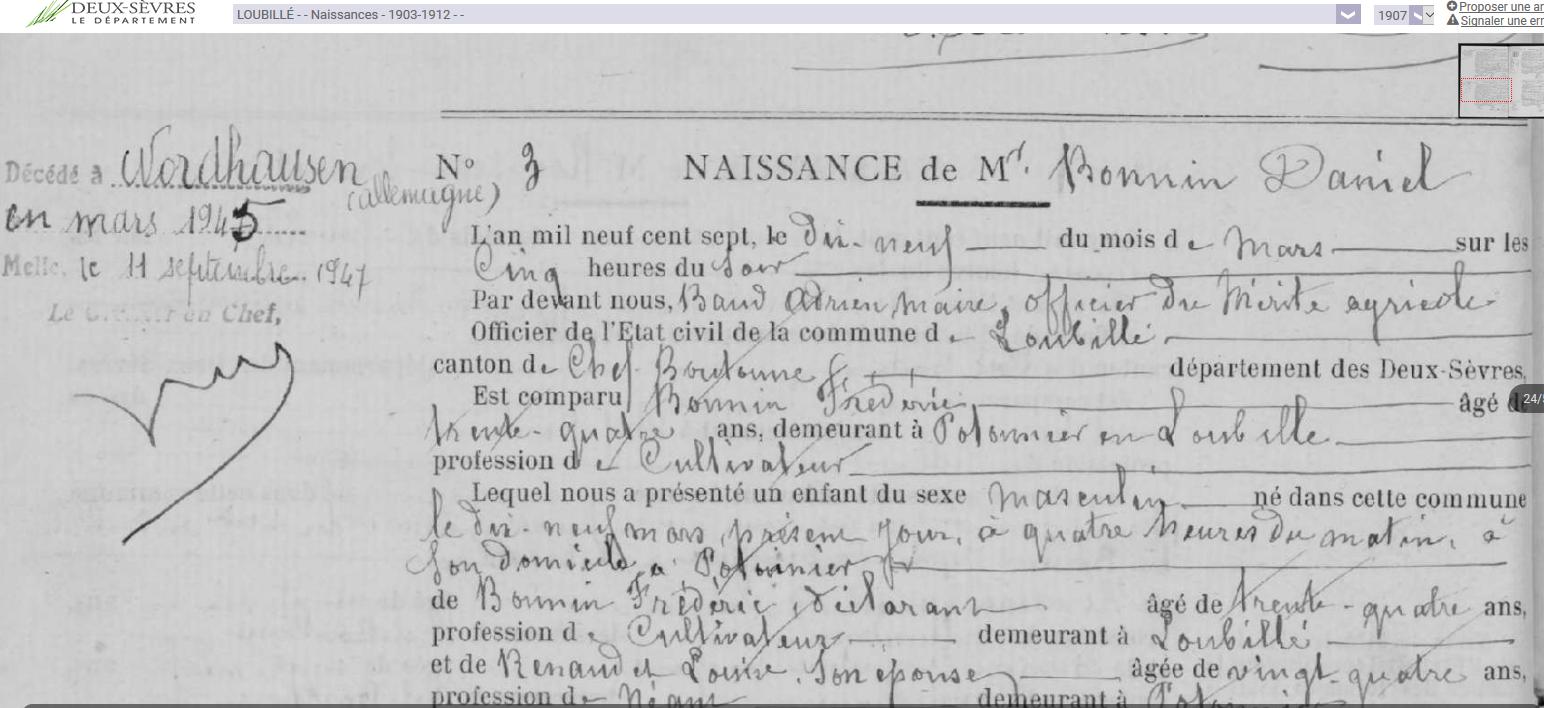 DEUX-SÈVRES
LE DÉPARTEMENT
LOUBILLÉ - - Naissances - 1903-1912 - -
1907
Proposer une an
Signaler une err
Décédé à Nordhausen
(allemagne)
en mars 1945
Melle, le 11 septembre 1947
Le Greffier en Chef,
N° 3 NAISSANCE de Mr. Bonnin Daniel
L'an mil neuf cent sept, le dix-neuf du mois de Mars sur les
Cinq heures du Soir
Par devant nous, Baud Adrien Maire, officier du Mérite agricole
Officier de l'Etat civil de la commune de Loubillé
canton de Chef Boutonne département des Deux-Sèvres,
Est comparu Bonnin Frédéric âgé de
trente-quatre ans, demeurant à Potonnier en Loubillé
profession de Cultivateur
Lequel nous a présenté un enfant du sexe masculin né dans cette commune
le dix-neuf mars, présent jour, à quatre heures du matin, à
son domicile à Potonnier
de Bonnin Frédéric, déclarant âgé de trente-quatre ans,
profession de Cultivateur demeurant à Loubillé
et de Renaud et Louise, Son épouse âgée de vingt-quatre ans,
profession de Néant demeurant à Potonnier
24/